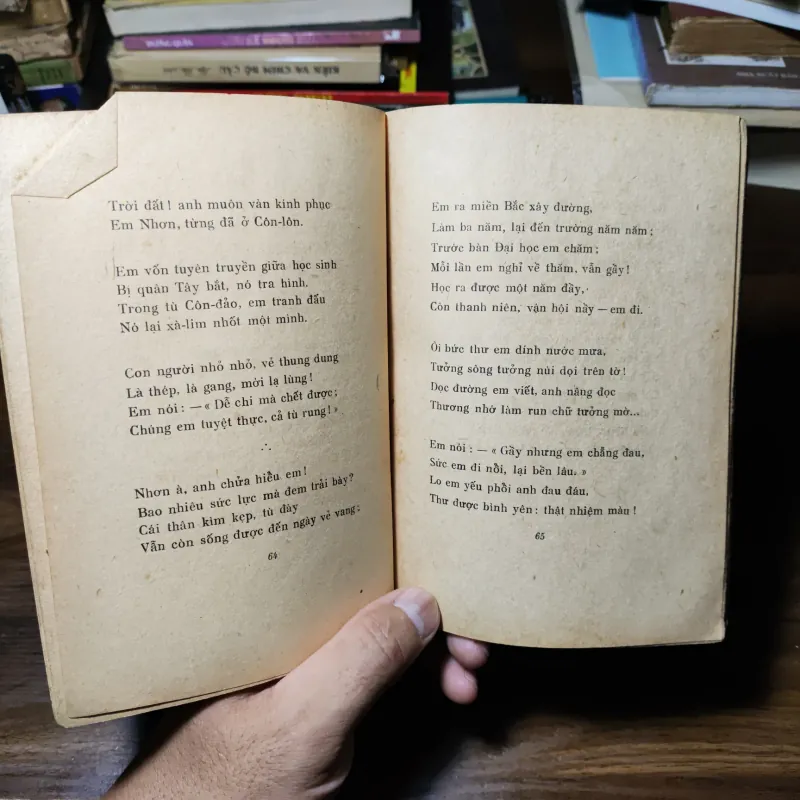 KIỀU VÀ CHINH BỐ CÁI
Trời đất! anh muôn vàn kính phục
Em Nhơn, từng đã ở Côn-lôn.
Em vốn tuyên truyền giữa học sinh
Bị quân Tây bắt, nó tra hình,
Trong tù Côn-đảo, em tranh đấu
Nó lại xà-lim nhốt một mình.
Con người nhỏ nhỏ, vẻ thung dung
Là thép, là gang, mới lạ lùng!
Em nói: — « Dễ chi mà chết được;
Chúng em tuyệt thực, cả tù rung! »
Nhơn à, anh chửa hiểu em!
Bao nhiêu sức lực mà đem trải bày?
Cái thân kìm kẹp, tù đày
Vẫn còn sống được đến ngày vẻ vang;
64
Em ra miền Bắc xây đường,
Làm ba năm, lại đến trường năm năm;
Trước bàn Đại học em chăm;
Mỗi lần em nghỉ về thăm, vẫn gầy!
Học ra được một năm đầy,
Còn thanh niên, vận hội nầy — em đi.
Ôi bức thư em dính nước mưa,
Tưởng sông tưởng núi dọi trên tờ!
Dọc đường em viết, anh nâng đọc
Thương nhớ làm run chữ tưởng mờ...
Em nói: — « Gầy nhưng em chẳng đau,
Sức em đi nổi, lại bền lâu. »
Lo em yếu phổi anh đau đáu,
Thư được bình yên: thật nhiệm màu!
65